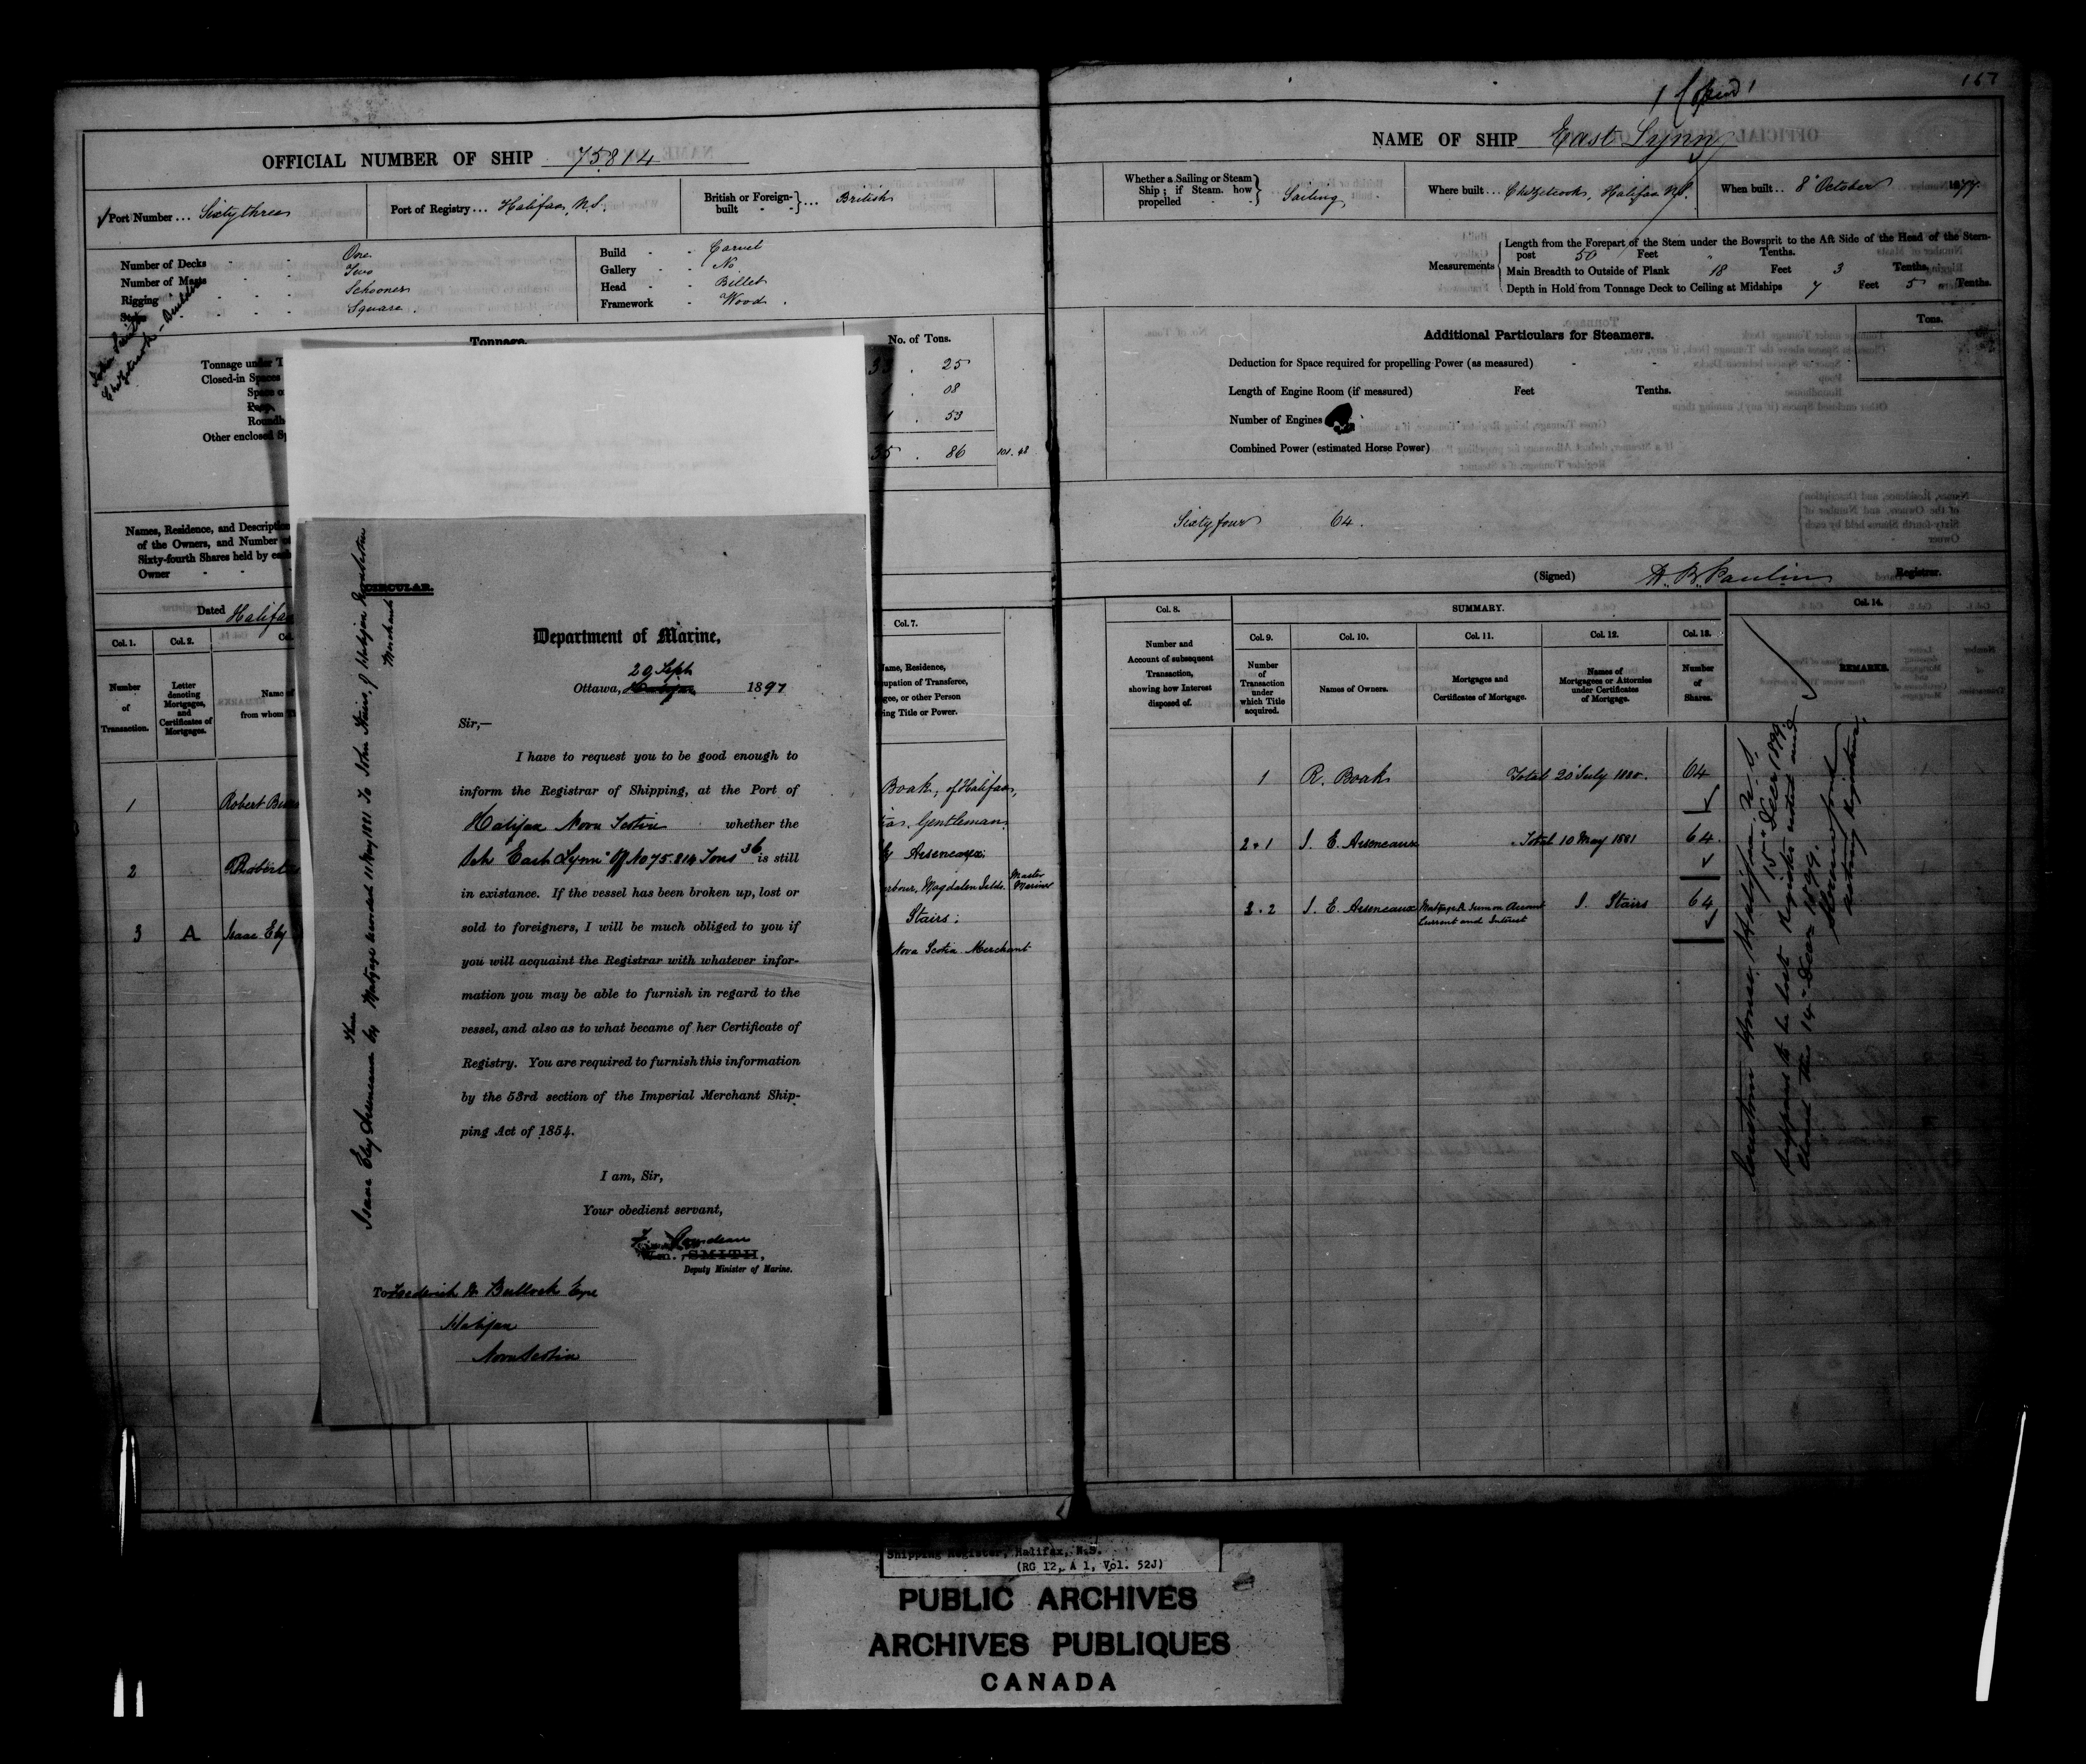 167
1 Copied 1
OFFICIAL NUMBER OF SHIP 75814
Port Number ... Sixty three
Port of Registry ... Halifax, N.S.
British or Foreign-built } ... British
Number of Decks - - One
Number of Masts - - Two
Rigging - - - Schooner
Stern - - - Square
Build - - Carvel
Gallery - - No
Head - - Billet
Framework - - Wood
Chezetcook
Tonnage.
No. of Tons.
Tonnage under T
Closed-in Spaces
Space
Poop,
Roundh
Other enclosed Sp
33 . 25
1 . 08
1 . 53
35 . 86
101.48
Names, Residence, and Description
of the Owners, and Number of
Sixty-fourth Shares held by each
Owner - -
Dated Halifax
Col. 1.
Col. 2.
Number
of
Transaction.
Letter
denoting
Mortgages,
and
Certificates of
Mortgages.
Name of
from whom
1 Robert
2 Robert
3 A Isaac Eby
CIRCULAR.
Department of Marine,
29 Sept
Ottawa, 1897
Sir,—
I have to request you to be good enough to
inform the Registrar of Shipping, at the Port of
Halifax Nova Scotia whether the
Sch "East Lynn" Off No 75.814 Tons 36 is still
in existance. If the vessel has been broken up, lost or
sold to foreigners, I will be much obliged to you if
you will acquaint the Registrar with whatever infor-
mation you may be able to furnish in regard to the
vessel, and also as to what became of her Certificate of
Registry. You are required to furnish this information
by the 53rd section of the Imperial Merchant Ship-
ping Act of 1854.
I am, Sir,
Your obedient servant,
F. Gourdeau
Wm. SMITH,
Deputy Minister of Marine.
To Frederick W Bullock Esqre
Halifax
Nova Scotia
Isaac Eby Arseneaux by Mortgage recorded 11 May 1881 to John Stairs, of Halifax Nova Scotia
Merchant
Col. 7.
Name, Residence,
upation of Transferee,
gee, or other Person
ing Title or Power.
Boak, of Halifax,
Gentleman
Eby Arseneaux;
rbour, Magdalen Islds. Master Mariner
Stairs;
Nova Scotia Merchant
NAME OF SHIP East Lynn
Whether a Sailing or Steam
Ship; if Steam, how
propelled } Sailing
Where built ... Chezetcook, Halifax N.S.
When built .. 8th October 1877
Measurements
Length from the Forepart of the Stem under the Bowsprit to the Aft Side of the Head of the Stern-
post 50 Feet " Tenths.
Main Breadth to Outside of Plank 18 Feet 3 Tenths.
Depth in Hold from Tonnage Deck to Ceiling at Midships 7 Feet 5 Tenths.
Additional Particulars for Steamers.
Tons.
Deduction for Space required for propelling Power (as measured) - -
Length of Engine Room (if measured) Feet Tenths.
Number of Engines
Combined Power (estimated Horse Power)
Sixty four 64.
(Signed) Registrar.
Col. 8.
Number and
Account of subsequent
Transaction,
showing how Interest
disposed of.
SUMMARY.
Col. 9.
Number
of
Transaction
under
which Title
acquired.
Col. 10.
Names of Owners.
Col. 11.
Mortgages and
Certificates of Mortgage.
Col. 12.
Names of
Mortgagees or Attornies
under Certificates
of Mortgage.
Col. 13.
Number
of
Shares.
Col. 14.
REMARKS.
1 R. Boak Total 20 July 1880. 64
2.1 I. E. Arseneaux Total 10 May 1881 64
3.2 I. E. Arseneaux Mortgage A Sum on Account Current and Interest J. Stairs 64
Custom House, Halifax N.S.
15th Decr 1899.
Supposed to be lost Register noted and
closed this 14th Decr 1899.
acting Registrar
Shipping Register, Halifax, N.S.
(RG 12, A 1, Vol. 52J)
PUBLIC ARCHIVES
ARCHIVES PUBLIQUES
CANADA